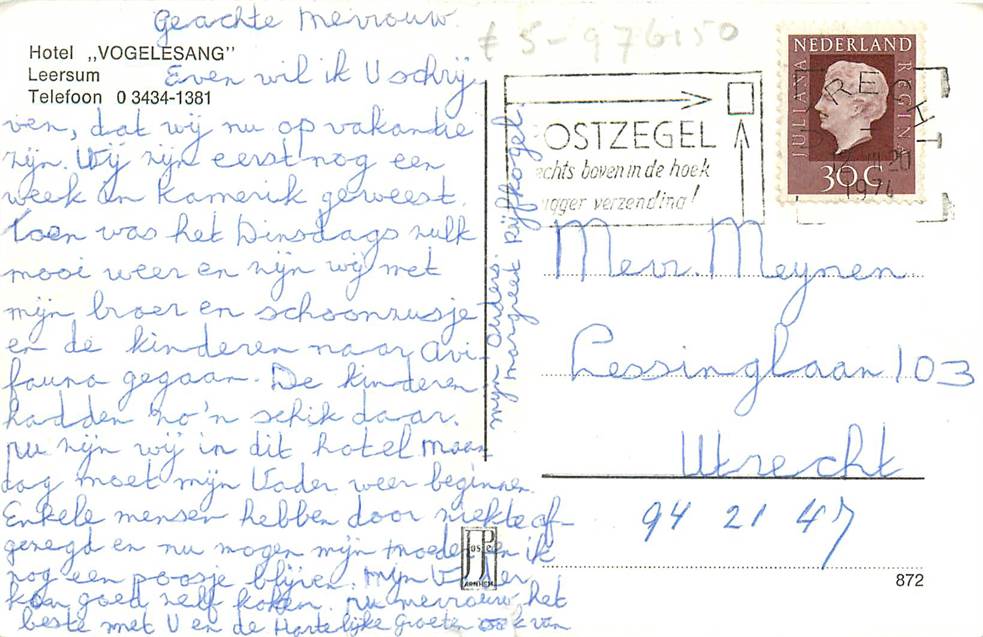 Geachte Mevrouw.
Hotel „VOGELESANG"
Leersum
Telefoon 0 3434-1381
Even wil ik U schrij
ven, dat wij nu op vakantie
zijn. Wij zijn eerst nog een
week in Kamerik geweest.
Toen was het Dinsdags zulk
mooi weer en zijn wij met
mijn broer en schoonzusje
en de kinderen naar Avi-
fauna gegaan. De kinderen
hadden zo'n schik daar.
Nu zijn wij in dit hotel Maan
dag moet mijn Vader weer beginnen.
Enkele mensen hebben door ziekte af-
gezegd en nu mogen mijn moeder en ik
nog een poosje blijven. Mijn Vader
kan goed zelf koken. Nu mevrouw het
beste met U en de Hartelijke Groeten ook van
mijn ouders.
Margreet
£ 5-976150
POSTZEGEL
rechts boven in de hoek
vlugger verzending!
NEDERLAND
JULIANA REGINA
30 C
UTRECHT
1974
Mevr. Meynen
Lessinglaan 103
Utrecht
94 21 47
JP
ARNHEM
872